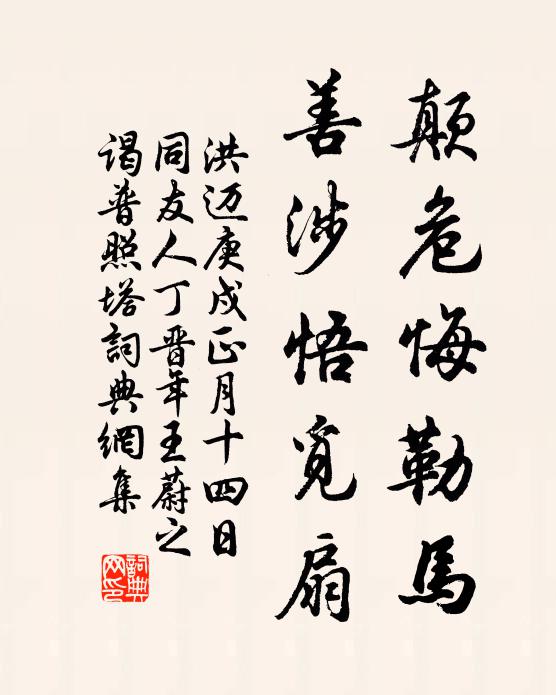 顛危悔勒馬
善涉悟覓扁
洪迈庚戌正月十四日
同友人丁晋年王蔚之
谒普照塔詞典網集
詞典网印